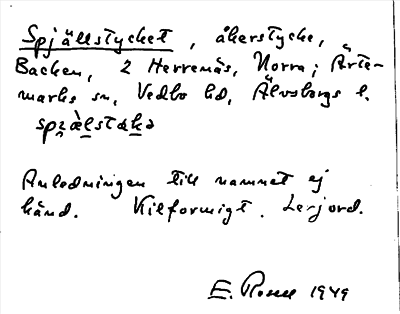 Spjällstycket, åkerstycke,
Backen, 2 Herrenäs, Norra; Ärte-
marks sn, Vedbo hd, Älvsborgs l.
spʒæ̀lstəkə
Anledningen till namnet ej
känd. Kilformigt. Lerjord.
E. Rosell 1949